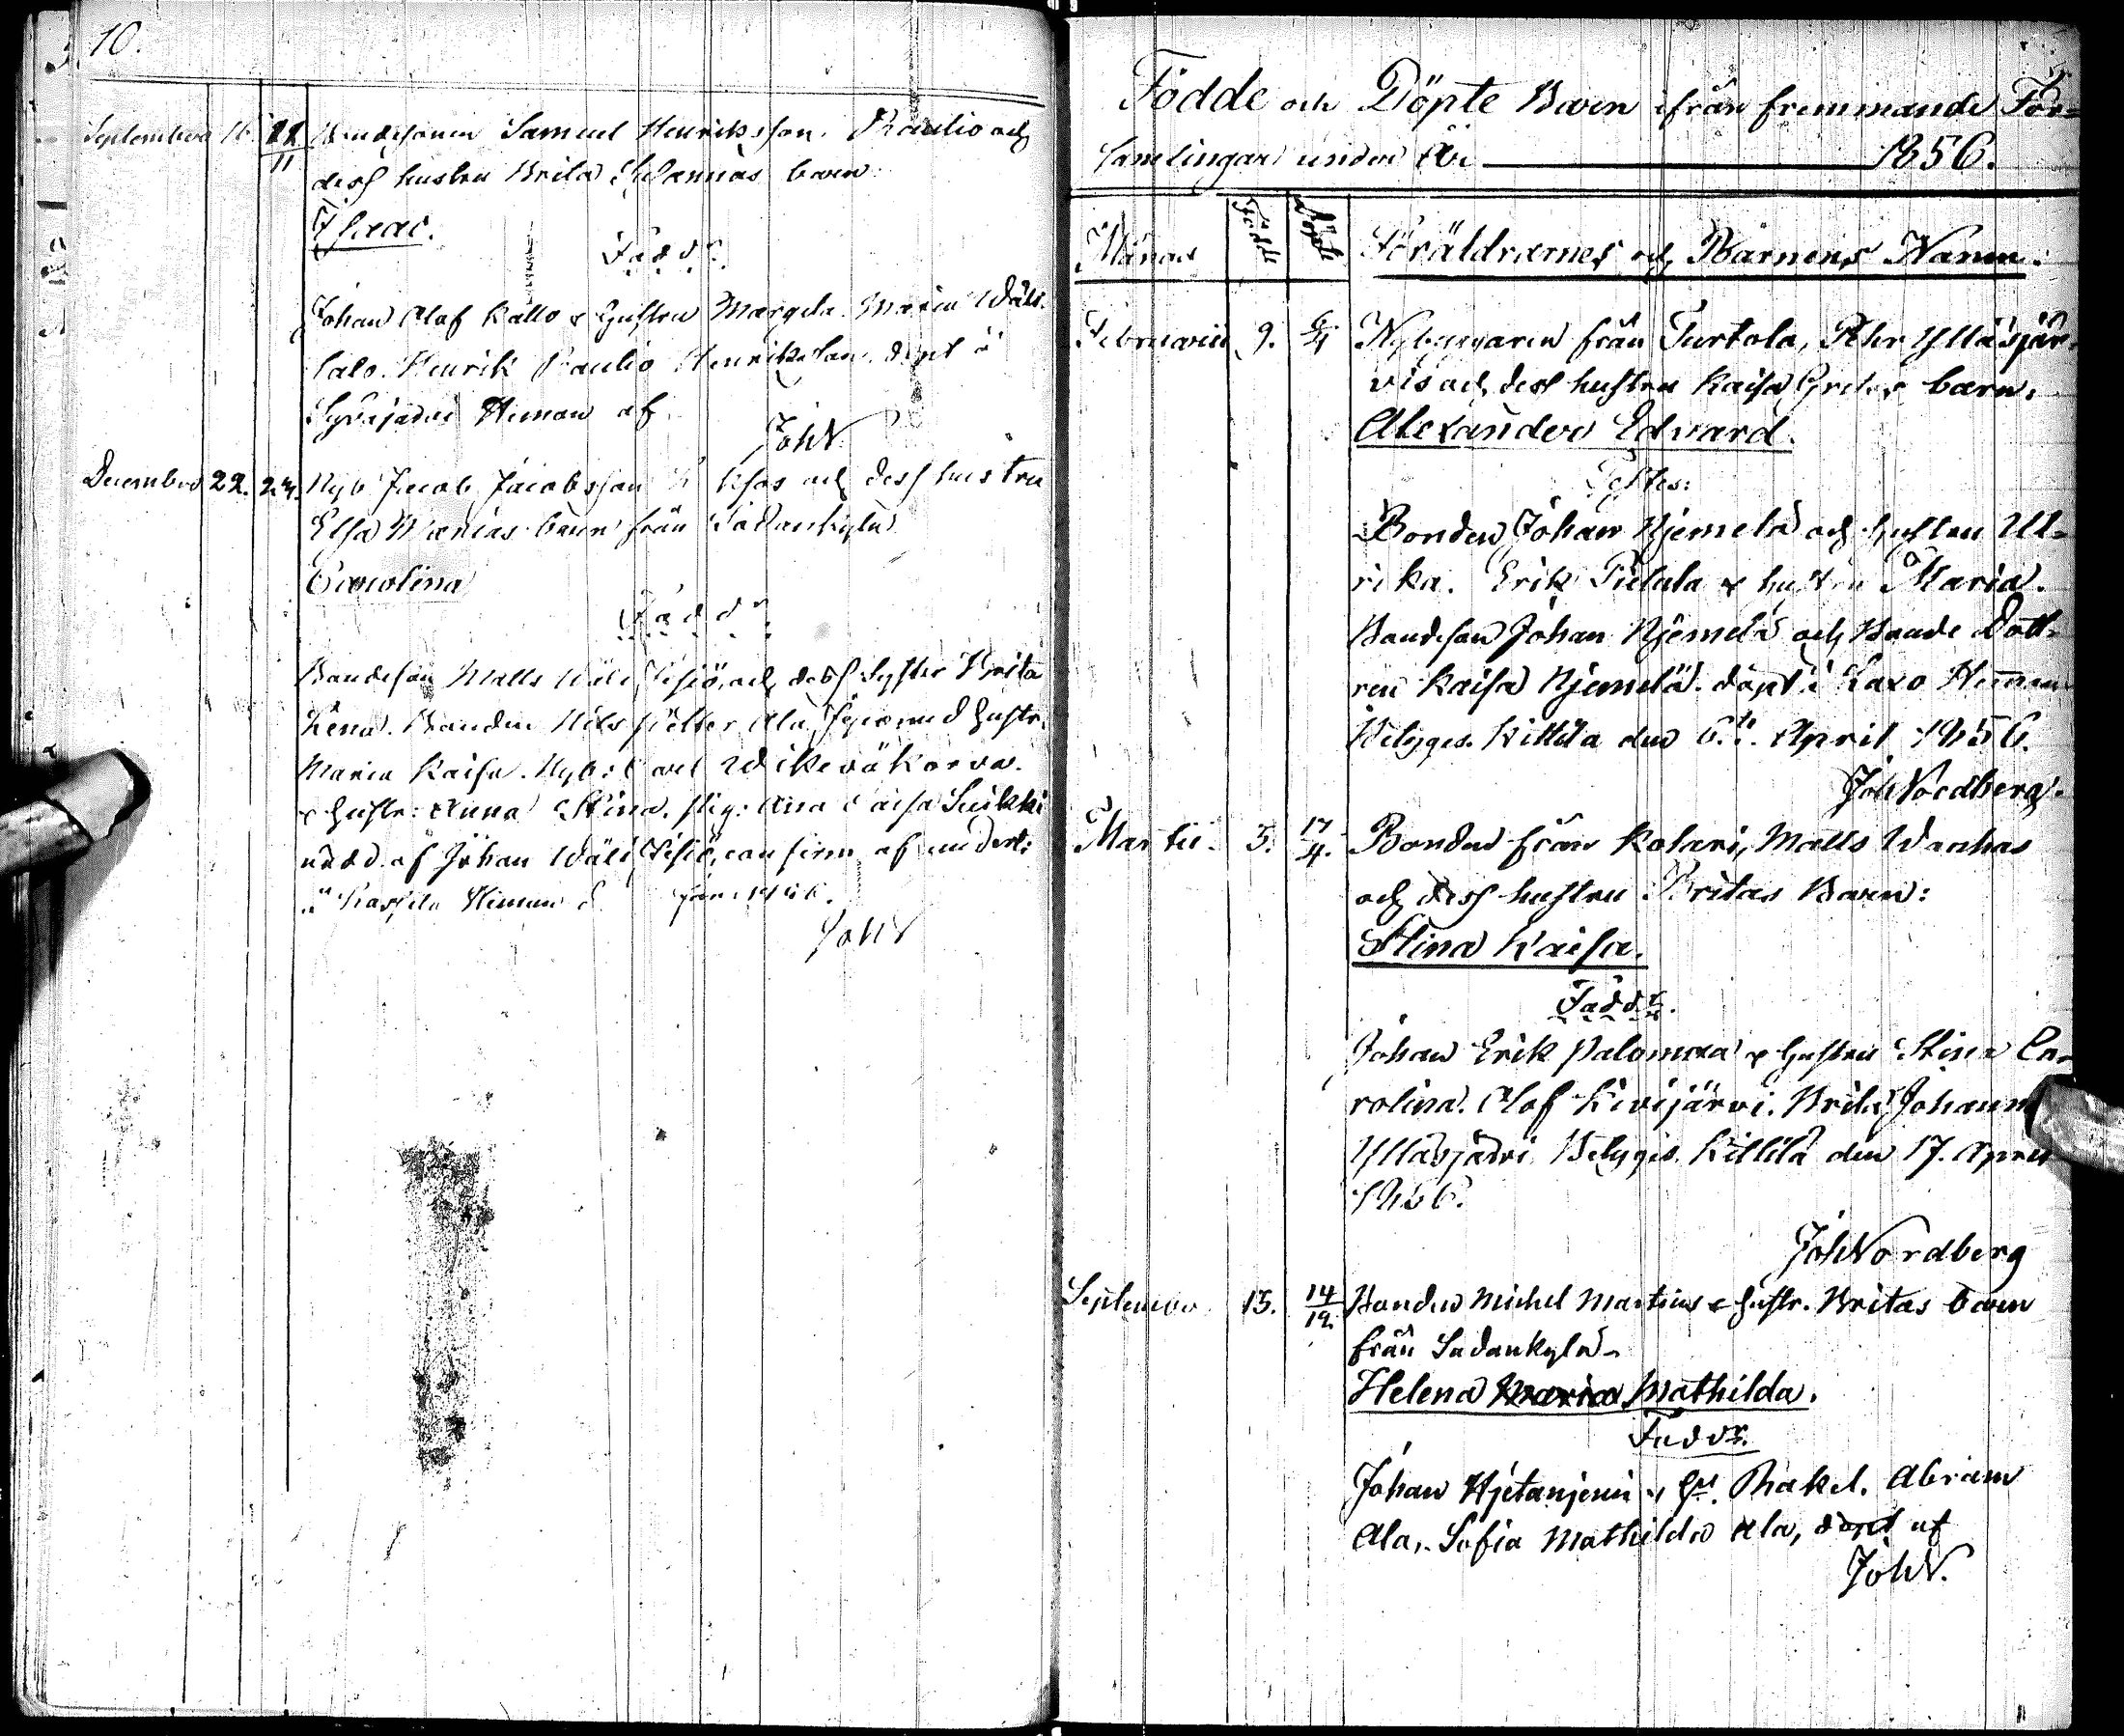 10.
September 16. 22/11 Bondesonen Samuel Henriksson Raulio och
dess hustru Brita Susannas barn
Isaac.
Fadd:r
Johan Olof Kallo & Hustru Margeta Maria Wäli
talo. Henrik Raulio Henriksson döpt å
Syväjärvi Heman af
JohN
December 22. 24. Nyb Jacob Jacobsson och dess hustru
Elsa Marias barn från Sodankylä
Carolina
Fadd:r
Bondeson Matts Wäli och dess Syster Brita
Lena. Bonden Nils Petter Ala och Hustr.
Maria Kaisa. Nyb: Carl Wikeväkorva
& Hustr: Anna Stina. Pig: Ana Caisa Suikki
nödd. af Johan Wäli confirm af undert:
Heman
JohN
Födde och Döpte Barn ifrån fremmande För-
samlingar under År 1856.
Månad Födde Döpte Föräldrarnes och Barnens Namn.
Februarii 9. 6/4 Nybyggaren från Turtola, Pehr Ylläsjär-
vis och dess hustru Kaisa Gretas barn,
Alexander Edvard.
Testes:
Bonden Johan Njemelä och hustru Ul-
rika. Erik Pietala & hustru Maria.
Bondeson Johan Njemelä och Bonde Dott-
ren Kaisa Njemelä. döpt i Heman
Betyges. Kittilä den 6:te April 1856.
JohNordberg.
Martii. 5. 17/4. Bonden från Kolari, Matts Wanhas
och dess hustru Britas Barn:
Stina Kaisa.
Fadd:r.
Johan Erik Palomaa & hustru Stina Ca-
rolina. Olof Kivijärvi. Brita Johanna
Ylläsjärvi Betyges. Kittilä den 17. April
1856.
JohNordberg
September 15. 14/12. Bonden Michel Martins & hustr. Britas barn
från Sodankylä
Helena Maria Mathilda.
Fadd:r.
Johan Hjetanjemi & Hu. Rakel. Abram
Ala,. Sofia Mathilda Ala, döpt af
JohN.